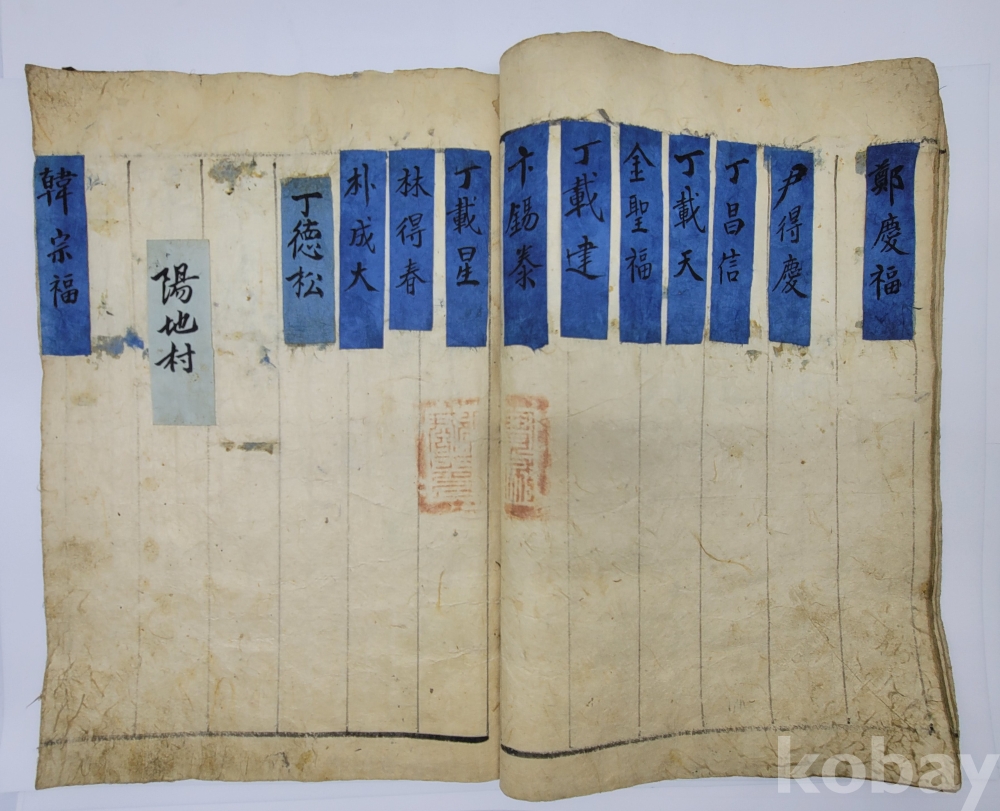 鄭慶福
尹得慶
丁昌信
丁載天
金聖福
丁載建
卞錫泰
丁載星
林得春
朴成大
丁德松
陽地村
韓宗福
kobay